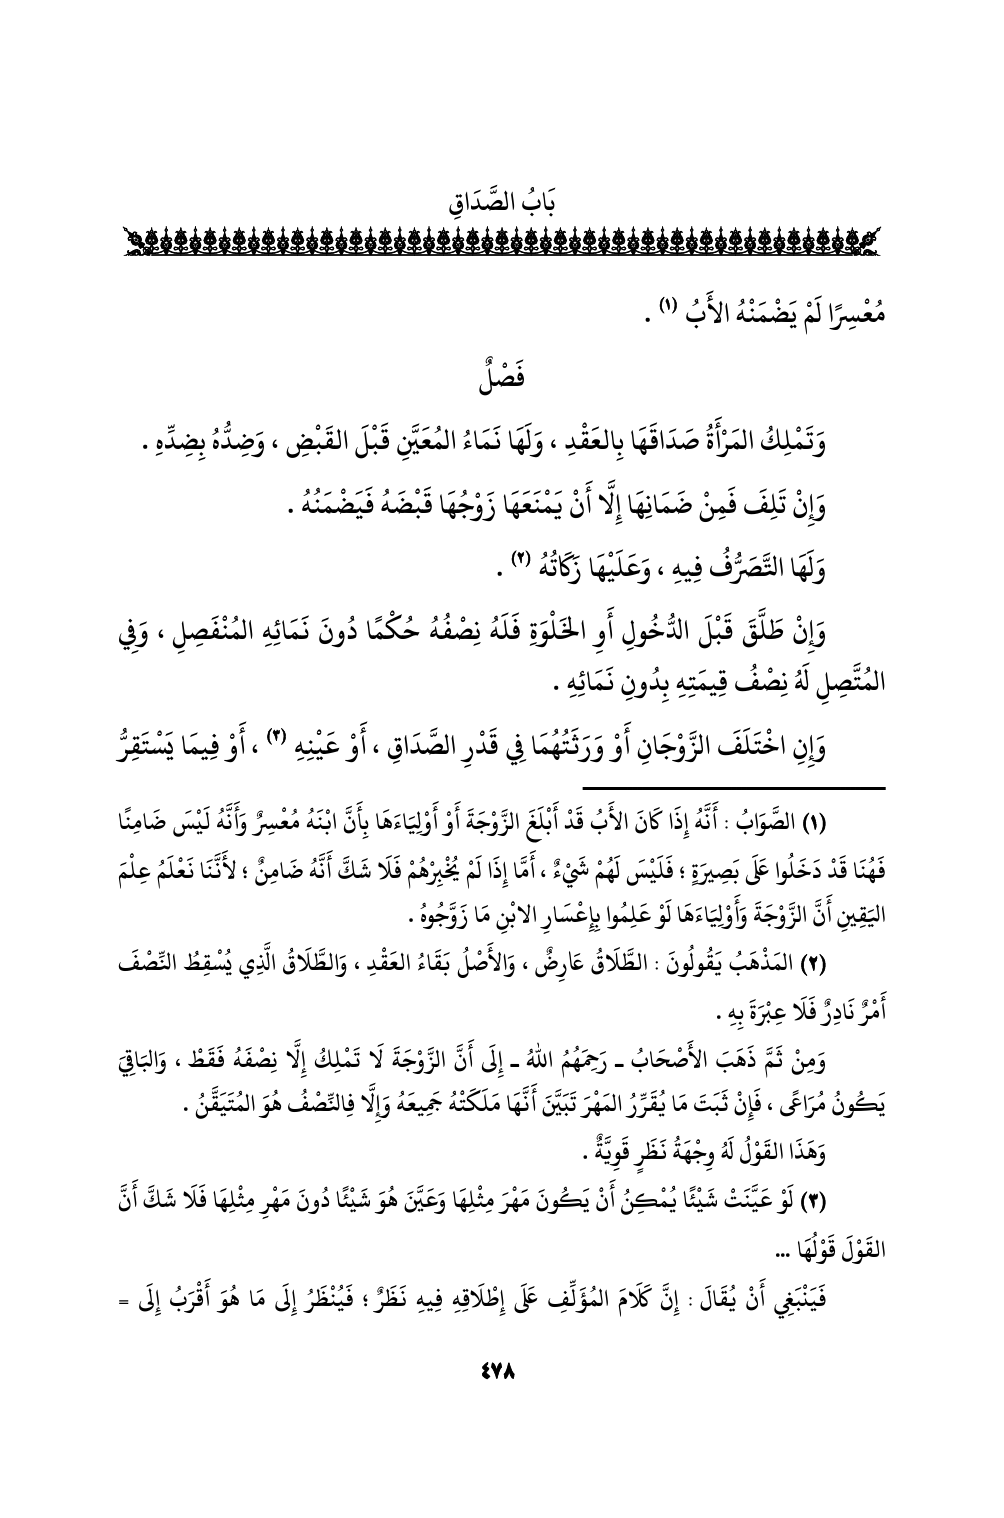 بَابُ الصَّدَاقِ
مُعْسِرًا لَمْ يَضْمَنْهُ الأَبُ (١) .
فَصْلٌ
وَتَمْلِكُ المَرْأَةُ صَدَاقَهَا بِالعَقْدِ ، وَلَهَا نَمَاءُ المُعَيَّنِ قَبْلَ القَبْضِ ، وَضِدُّهُ بِضِدِّهِ .
وَإِنْ تَلِفَ فَمِنْ ضَمَانِهَا إِلَّا أَنْ يَمْنَعَهَا زَوْجُهَا قَبْضَهُ فَيَضْمَنُهُ .
وَلَهَا التَّصَرُّفُ فِيهِ ، وَعَلَيْهَا زَكَاتُهُ (٢) .
وَإِنْ طَلَّقَ قَبْلَ الدُّخُولِ أَوِ الخَلْوَةِ فَلَهُ نِصْفُهُ حُكْمًا دُونَ نَمَائِهِ المُنْفَصِلِ ، وَفِي
المُتَّصِلِ لَهُ نِصْفُ قِيمَتِهِ بِدُونِ نَمَائِهِ .
وَإِنِ اخْتَلَفَ الزَّوْجَانِ أَوْ وَرَثَتُهُمَا فِي قَدْرِ الصَّدَاقِ ، أَوْ عَيْنِهِ (٣) ، أَوْ فِيمَا يَسْتَقِرُّ
(١) الصَّوَابُ : أَنَّهُ إِذَا كَانَ الأَبُ قَدْ أَبْلَغَ الزَّوْجَةَ أَوْ أَوْلِيَاءَهَا بِأَنَّ ابْنَهُ مُعْسِرٌ وَأَنَّهُ لَيْسَ ضَامِنًا
فَهُنَا قَدْ دَخَلُوا عَلَى بَصِيرَةٍ ؛ فَلَيْسَ لَهُمْ شَيْءٌ ، أَمَّا إِذَا لَمْ يُخْبِرْهُمْ فَلَا شَكَّ أَنَّهُ ضَامِنٌ ؛ لأَنَّنَا نَعْلَمُ عِلْمَ
اليَقِينِ أَنَّ الزَّوْجَةَ وَأَوْلِيَاءَهَا لَوْ عَلِمُوا بِإِعْسَارِ الابْنِ مَا زَوَّجُوهُ .
(٢) المَذْهَبُ يَقُولُونَ : الطَّلَاقُ عَارِضٌ ، وَالأَصْلُ بَقَاءُ العَقْدِ ، وَالطَّلَاقُ الَّذِي يُسْقِطُ النِّصْفَ
أَمْرٌ نَادِرٌ فَلَا عِبْرَةَ بِهِ .
وَمِنْ ثَمَّ ذَهَبَ الأَصْحَابُ ـ رَحِمَهُمُ اللهُ ـ إِلَى أَنَّ الزَّوْجَةَ لَا تَمْلِكُ إِلَّا نِصْفَهُ فَقَطْ ، وَالبَاقِيَ
يَكُونُ مُرَاعًى ، فَإِنْ ثَبَتَ مَا يُقَرِّرُ المَهْرَ تَبَيَّنَ أَنَّهَا مَلَكَتْهُ جَمِيعَهُ وَإِلَّا فِالنِّصْفُ هُوَ المُتَيَقَّنُ .
وَهَذَا القَوْلُ لَهُ وِجْهَةُ نَظَرٍ قَوِيَّةٌ .
(٣) لَوْ عَيَّنَتْ شَيْئًا يُمْكِنُ أَنْ يَكُونَ مَهْرَ مِثْلِهَا وَعَيَّنَ هُوَ شَيْئًا دُونَ مَهْرِ مِثْلِهَا فَلَا شَكَّ أَنَّ
القَوْلَ قَوْلُهَا ...
فَيَنْبَغِي أَنْ يُقَالَ : إِنَّ كَلَامَ المُؤَلِّفِ عَلَى إِطْلَاقِهِ فِيهِ نَظَرٌ ؛ فَيُنْظَرُ إِلَى مَا هُوَ أَقْرَبُ إِلَى =
٤٧٨